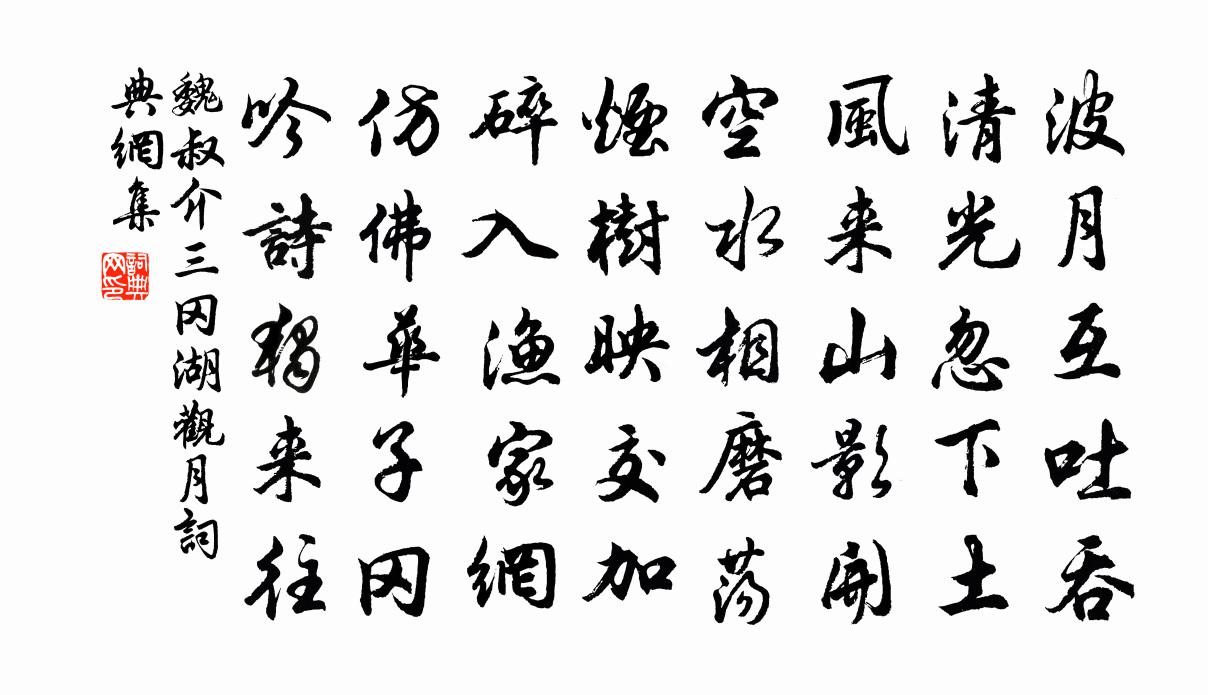 波月互吐吞
清光忽下土
風来山影開
空水相磨荡
煙樹映交加
碎入漁家網
仿佛華子冈
吟詩獨来往
魏叔介三冈湖觀月詞
典網集
詞典网印